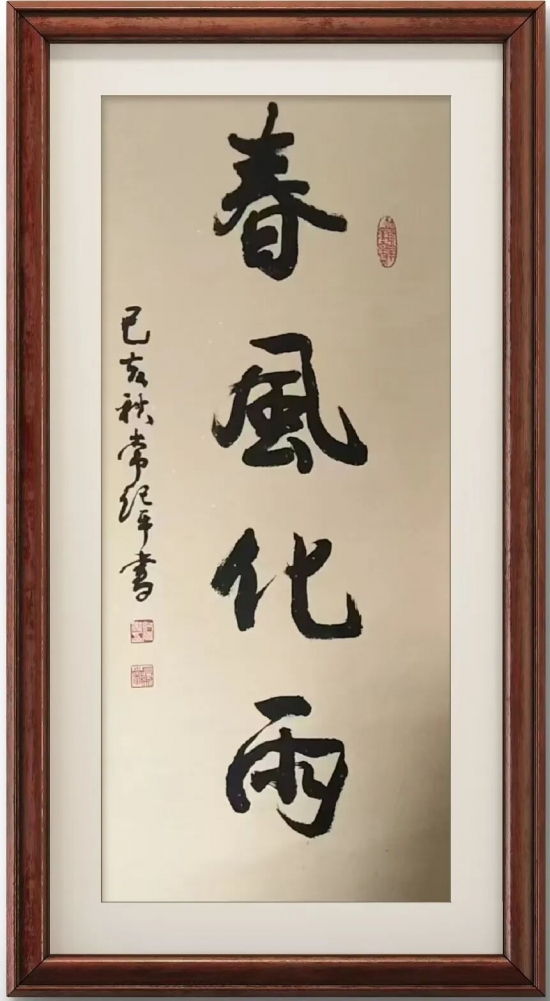 春風化雨
己亥秋常纪平書